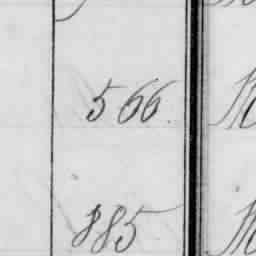 566.
885